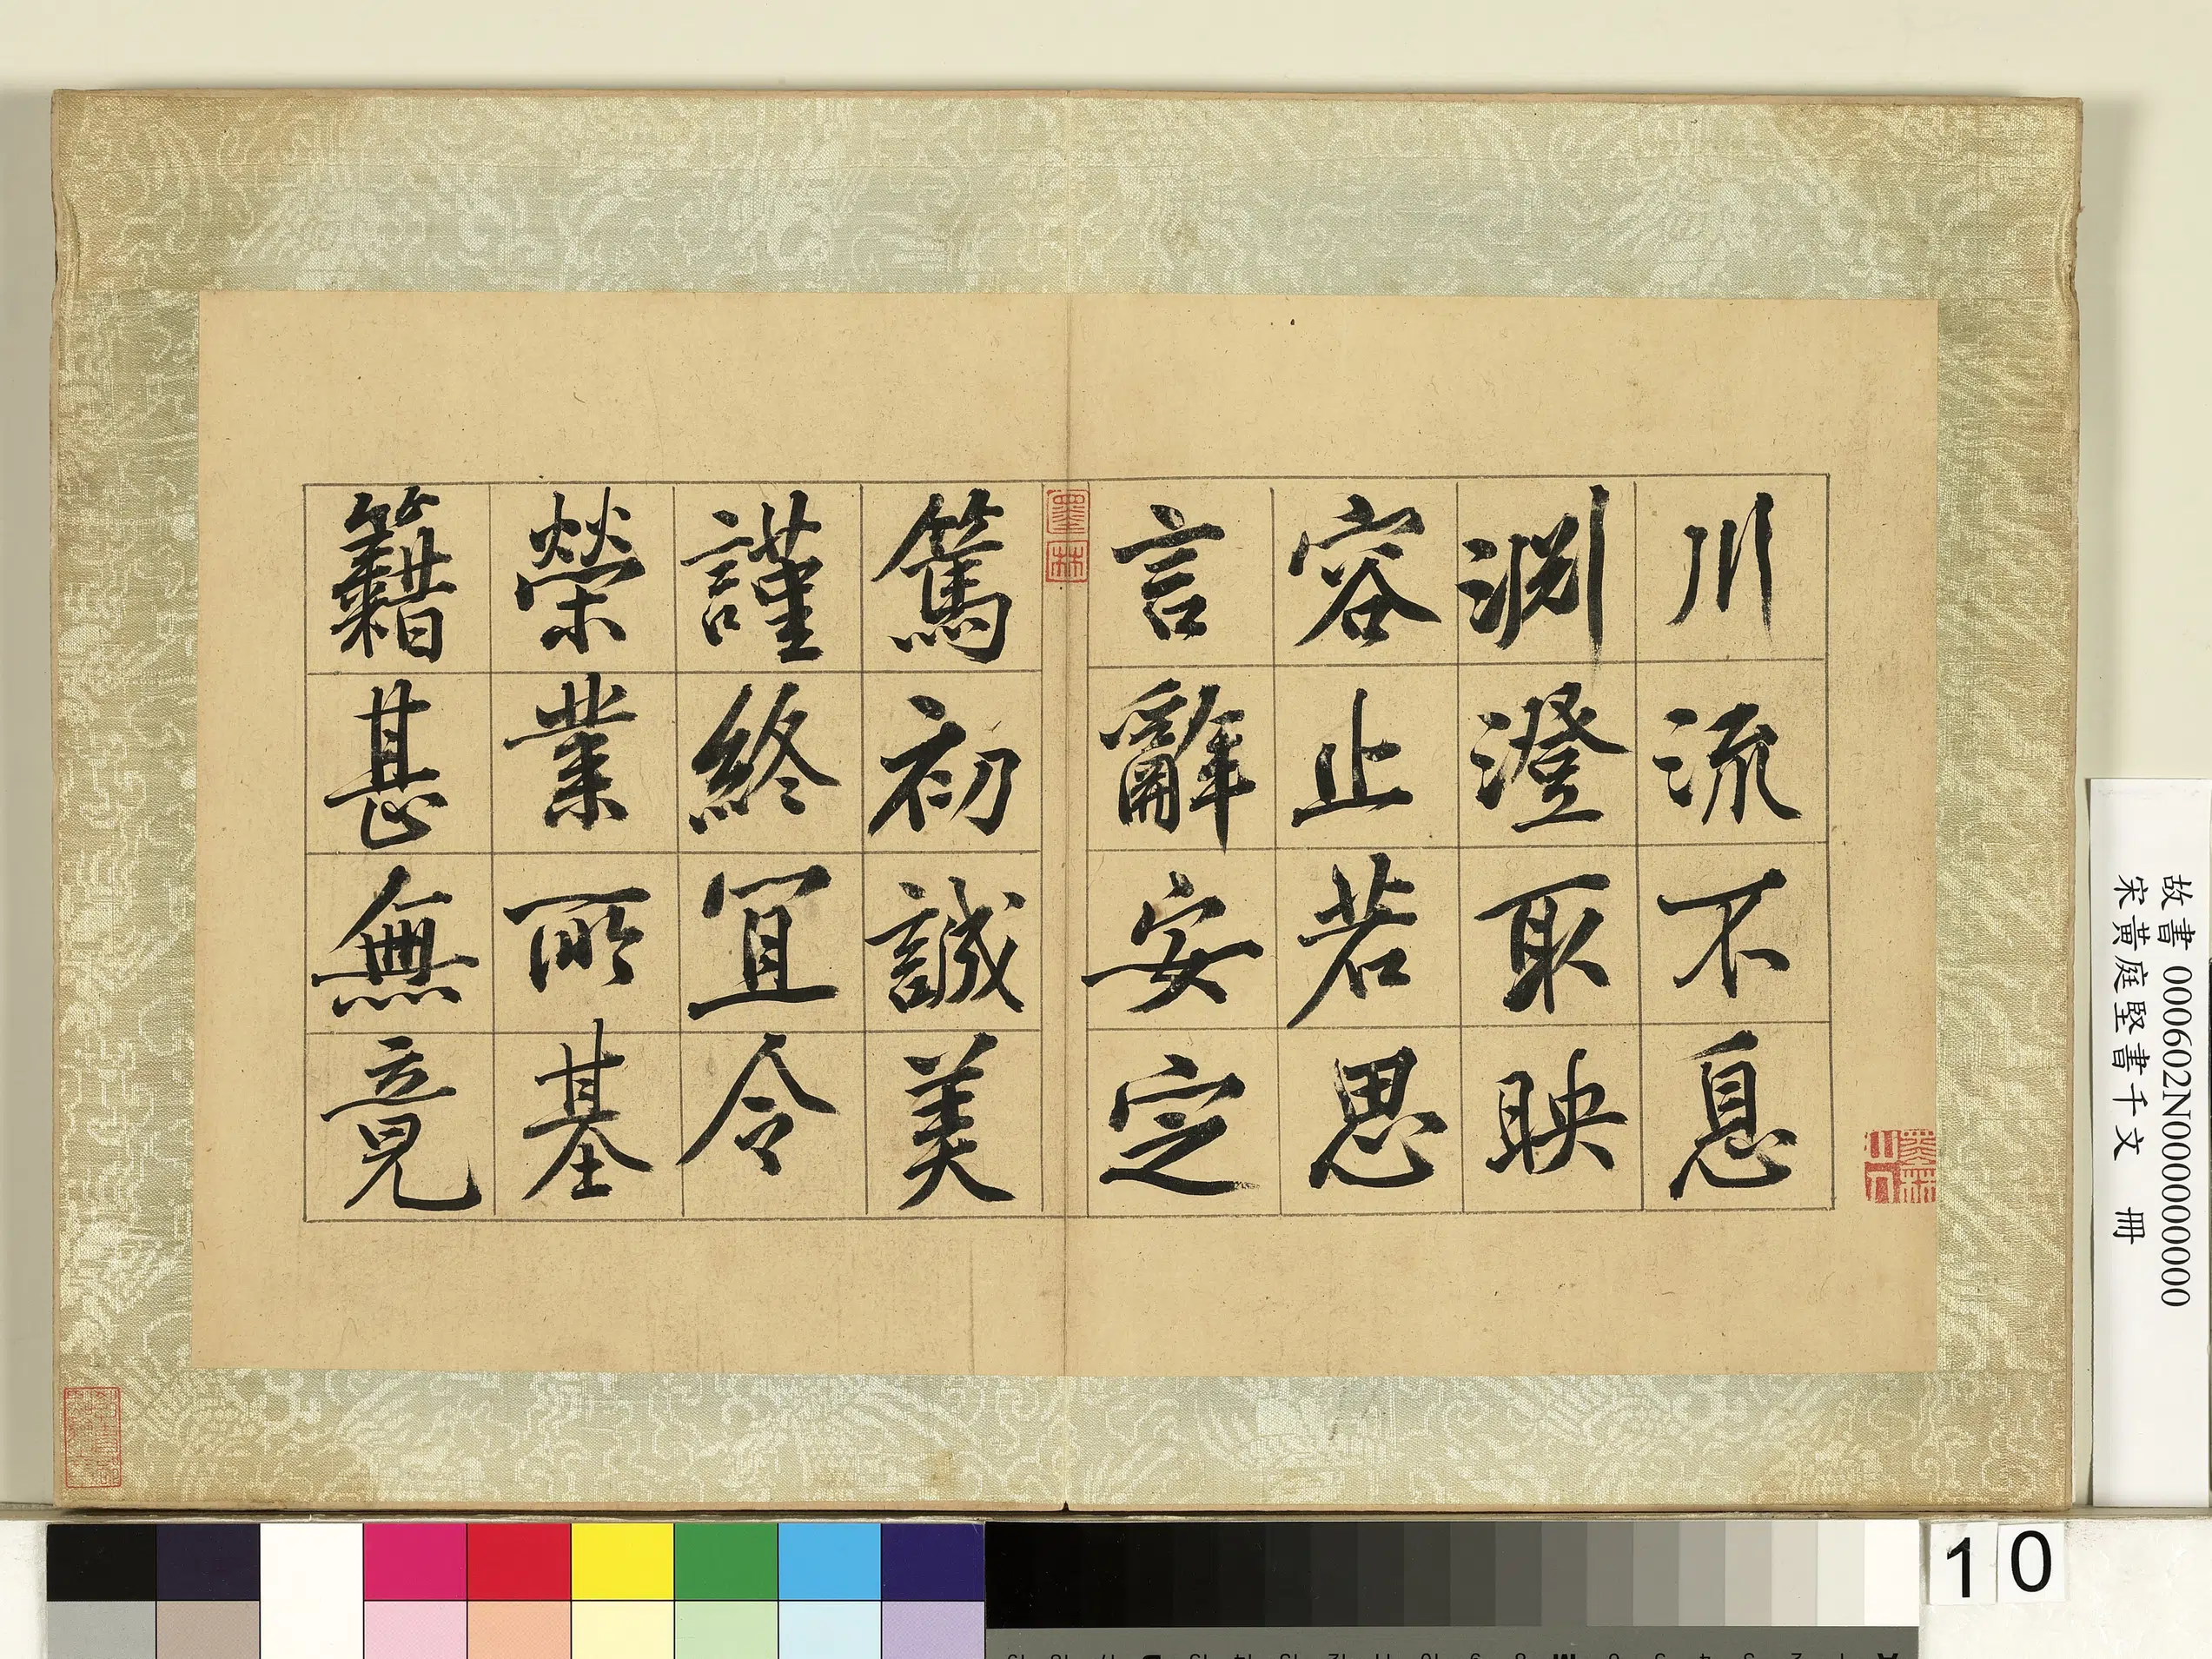 川流不息
淵澄取映
容止若思
言辭安定
篤初誠美
謹終宜令
榮業所基
籍甚無竟
墨林
墨林
故書 000602N000000000
宋黃庭堅書千文 冊
10